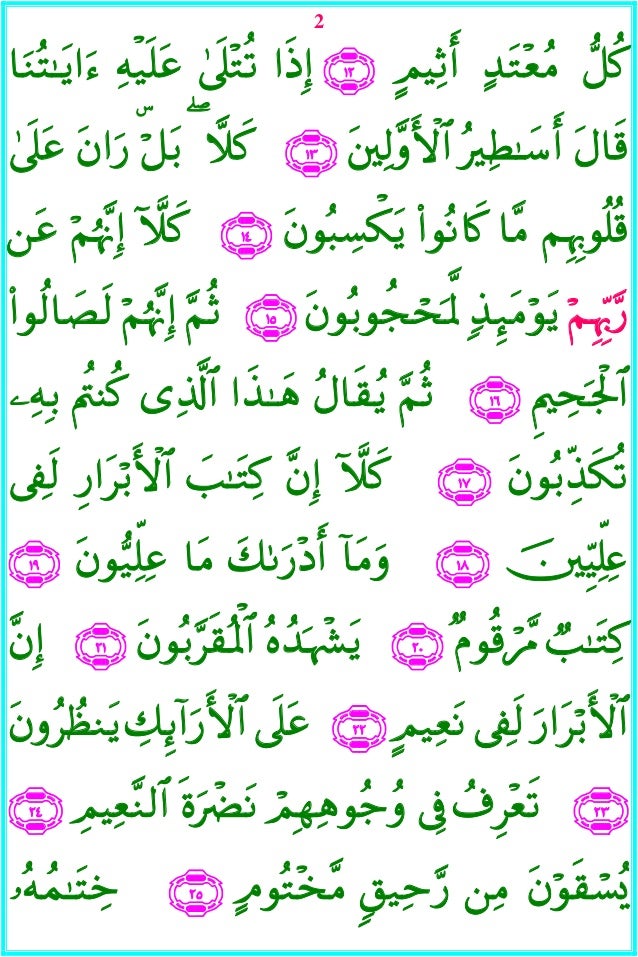 2
كُلُّ مُعْتَدٍ أَثِيمٍ ١٢ إِذَا تُتْلَىٰ عَلَيْهِ ءَايَـٰتُنَا
قَالَ أَسَـٰطِيرُ ٱلْأَوَّلِينَ ١٣ كَلَّا ۖ بَلْ ۜ رَانَ عَلَىٰ
قُلُوبِهِم مَّا كَانُوا۟ يَكْسِبُونَ ١٤ كَلَّآ إِنَّهُمْ عَن
رَّبِّهِمْ يَوْمَئِذٍ لَّمَحْجُوبُونَ ١٥ ثُمَّ إِنَّهُمْ لَصَالُوا۟
ٱلْجَحِيمِ ١٦ ثُمَّ يُقَالُ هَـٰذَا ٱلَّذِى كُنتُم بِهِۦ
تُكَذِّبُونَ ١٧ كَلَّآ إِنَّ كِتَـٰبَ ٱلْأَبْرَارِ لَفِى
عِلِّيِّينَ ١٨ وَمَآ أَدْرَىٰكَ مَا عِلِّيُّونَ ١٩
كِتَـٰبٌ مَّرْقُومٌ ٢٠ يَشْهَدُهُ ٱلْمُقَرَّبُونَ ٢١ إِنَّ
ٱلْأَبْرَارَ لَفِى نَعِيمٍ ٢٢ عَلَى ٱلْأَرَآئِكِ يَنظُرُونَ
٢٣ تَعْرِفُ فِى وُجُوهِهِمْ نَضْرَةَ ٱلنَّعِيمِ ٢٤
يُسْقَوْنَ مِن رَّحِيقٍ مَّخْتُومٍ ٢٥ خِتَـٰمُهُۥ